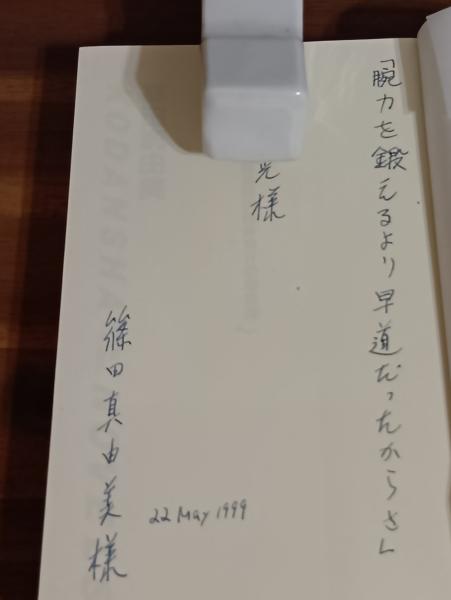 「腕力を鍛えるより早道だったからさ」
光様
篠田真由美様
22 May 1999